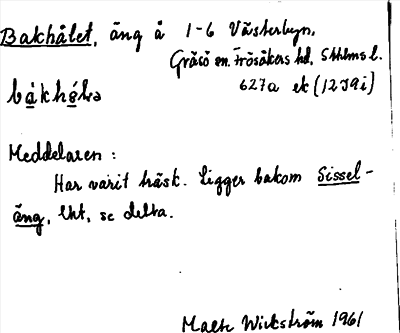 Bakhålet, äng å 1-6 Västerbyn,
Gräsö sn. Frösåkers hd, Sthlms l.
627a ek (12J9i)
bàkhóla
Meddelaren:
Har varit träsk. Ligger bakom Sissel-
äng, Uht, se detta.
Malte Wickström 1961